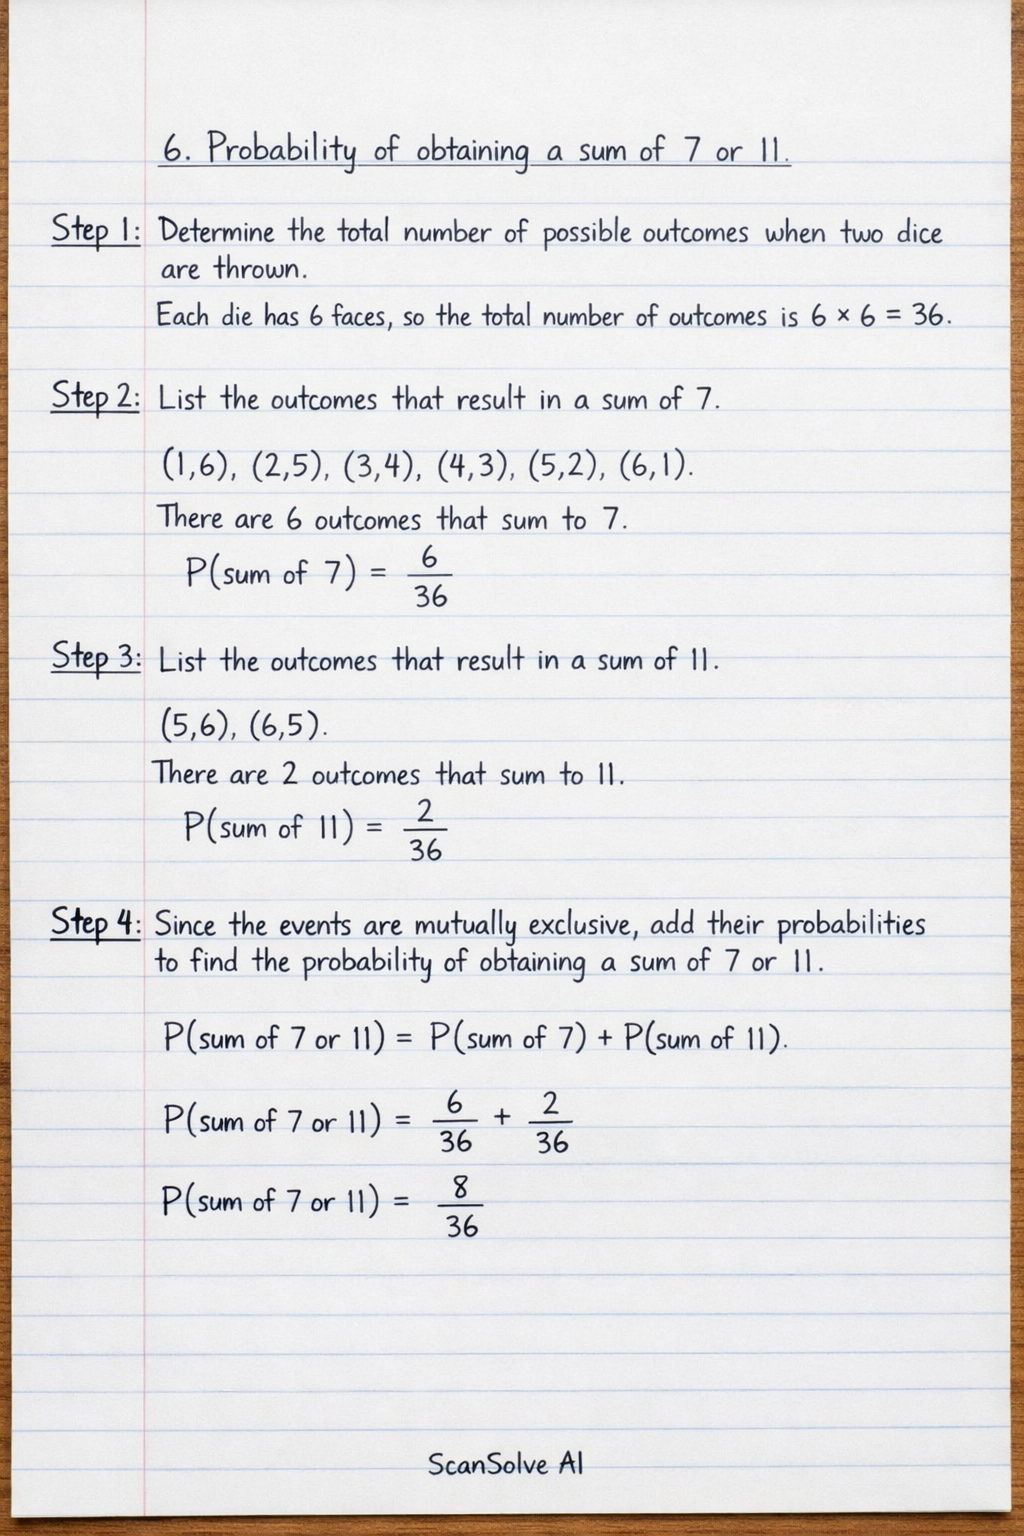 6. Probability of obtaining a sum of 7 or 11.
Step 1: Determine the total number of possible outcomes when two dice
are thrown.
Each die has 6 faces, so the total number of outcomes is 6 × 6 = 36.
Step 2: List the outcomes that result in a sum of 7.
(1,6), (2,5), (3,4), (4,3), (5,2), (6,1).
There are 6 outcomes that sum to 7.
P(sum of 7) = 6/36
Step 3: List the outcomes that result in a sum of 11.
(5,6), (6,5).
There are 2 outcomes that sum to 11.
P(sum of 11) = 2/36
Step 4: Since the events are mutually exclusive, add their probabilities
to find the probability of obtaining a sum of 7 or 11.
P(sum of 7 or 11) = P(sum of 7) + P(sum of 11).
P(sum of 7 or 11) = 6/36 + 2/36
P(sum of 7 or 11) = 8/36
ScanSolve AI